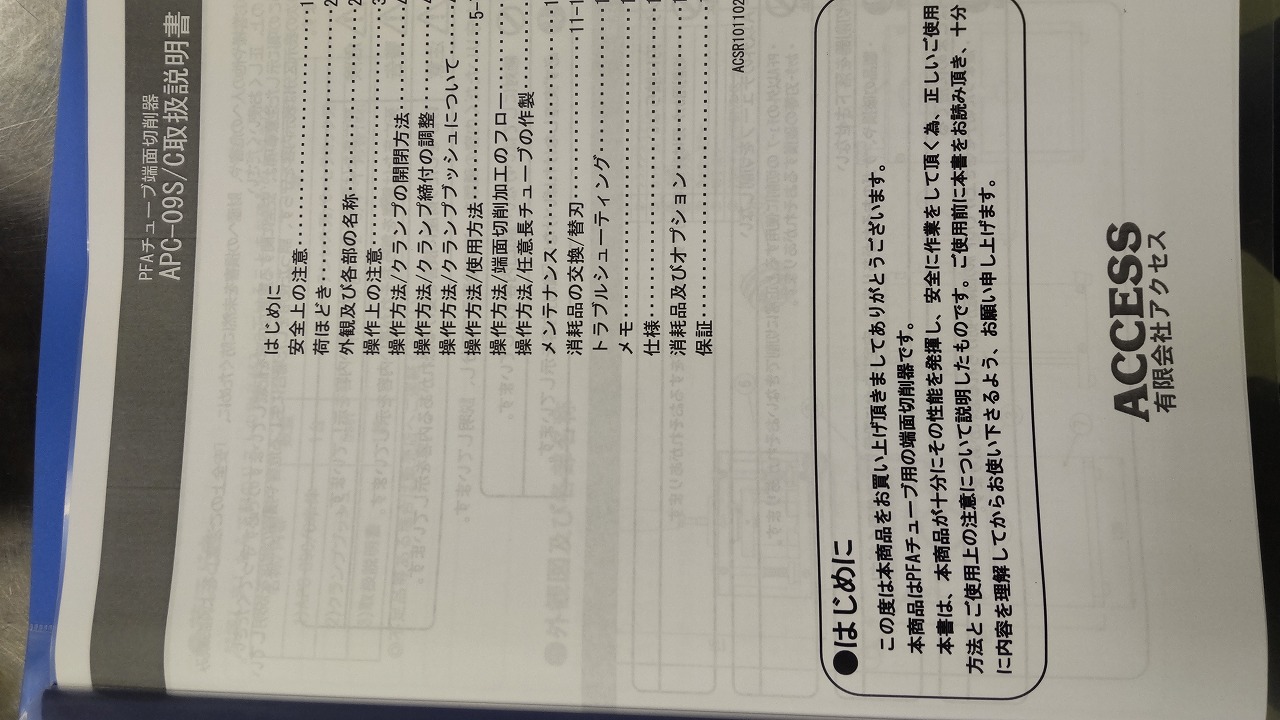 PFAチューブ端面切削器
APC-09S/C取扱説明書
はじめに
安全上の注意・・・・・・・・・・・・・・・・1
荷ほどき・・・・・・・・・・・・・・・・・・2
外観及び各部の名称・・・・・・・・・・・・・2
操作上の注意・・・・・・・・・・・・・・・・3
操作方法/クランプの開閉方法・・・・・・・・4
操作方法/クランプ締付の調整・・・・・・・・4
操作方法/クランプブッシュについて・・・・・
操作方法/使用方法・・・・・・・・・・・・・5-
操作方法/端面切削加工のフロー・・・・・・・
操作方法/任意長チューブの作製・・・・・・・
メンテナンス・・・・・・・・・・・・・・・・1
消耗品の交換/替刃・・・・・・・・・・・・・11-1
トラブルシューティング・・・・・・・・・・・1
メモ・・・・・・・・・・・・・・・・・・・・1
仕様・・・・・・・・・・・・・・・・・・・・1
消耗品及びオプション・・・・・・・・・・・・1
保証・・・・・・・・・・・・・・・・・・・・
ACSR101102
●はじめに
この度は本商品をお買い上げ頂きましてありがとうございます。
本商品はPFAチューブ用の端面切削器です。
本書は、本商品が十分にその性能を発揮し、安全に作業をして頂く為、正しいご使用
方法とご使用上の注意について説明したものです。ご使用前に本書をお読み頂き、十分
に内容を理解してからお使い下さるよう、お願い申し上げます。
ACCESS
有限会社アクセス